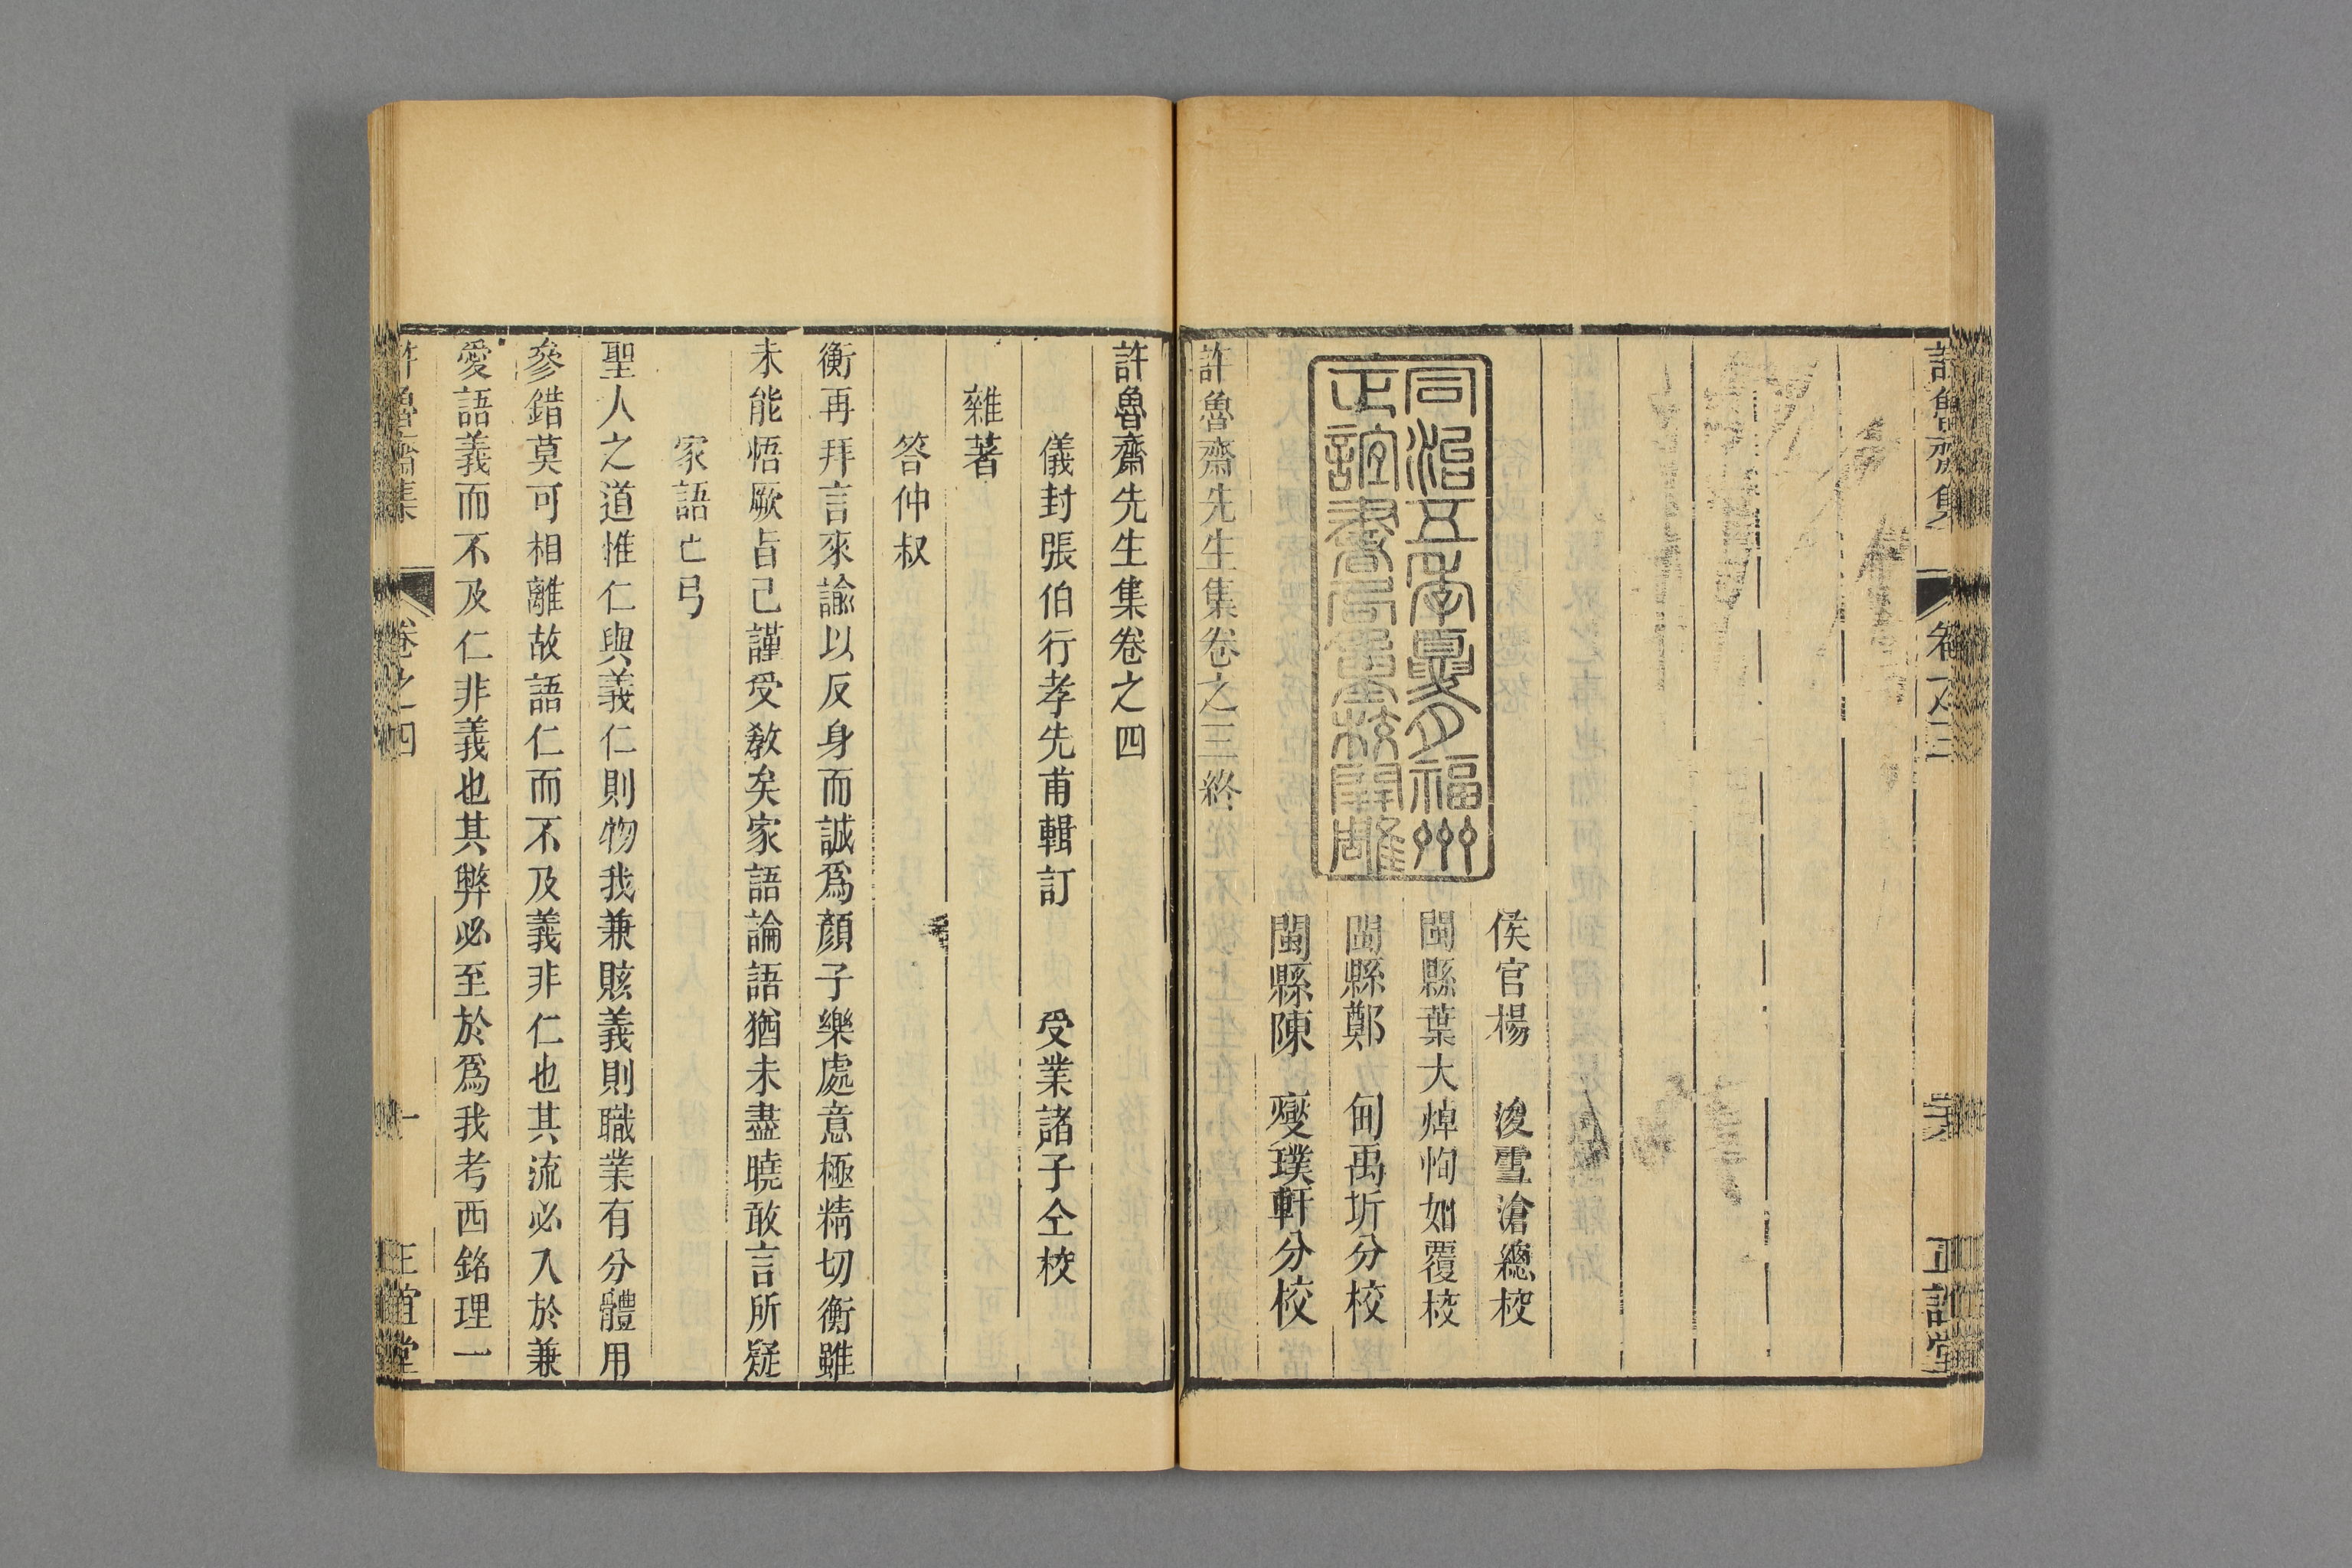 許魯齋集
卷之三
正誼堂
侯官楊　浚雪滄總校
閩縣葉大焯恂如覆校
閩縣鄭　旬禹圻分校
閩縣陳　燮璞軒分校
同治五年夏月福州
正誼書局重校開雕
許魯齋先生集卷之三終
許魯齋先生集卷之四
儀封張伯行孝先甫輯訂　受業諸子仝校
雜著
答仲叔
衡再拜言來諭以反身而誠爲顏子樂處意極精切衡雖
未能悟厥旨己謹受敎矣家語論語猶未盡曉敢言所疑
家語亡弓
聖人之道惟仁與義仁則物我兼賅義則職業有分體用
參錯莫可相離故語仁而不及義非仁也其流必入於兼
愛語義而不及仁非義也其弊必至於爲我考西銘理一
許魯齋集
卷之四
一
正誼堂